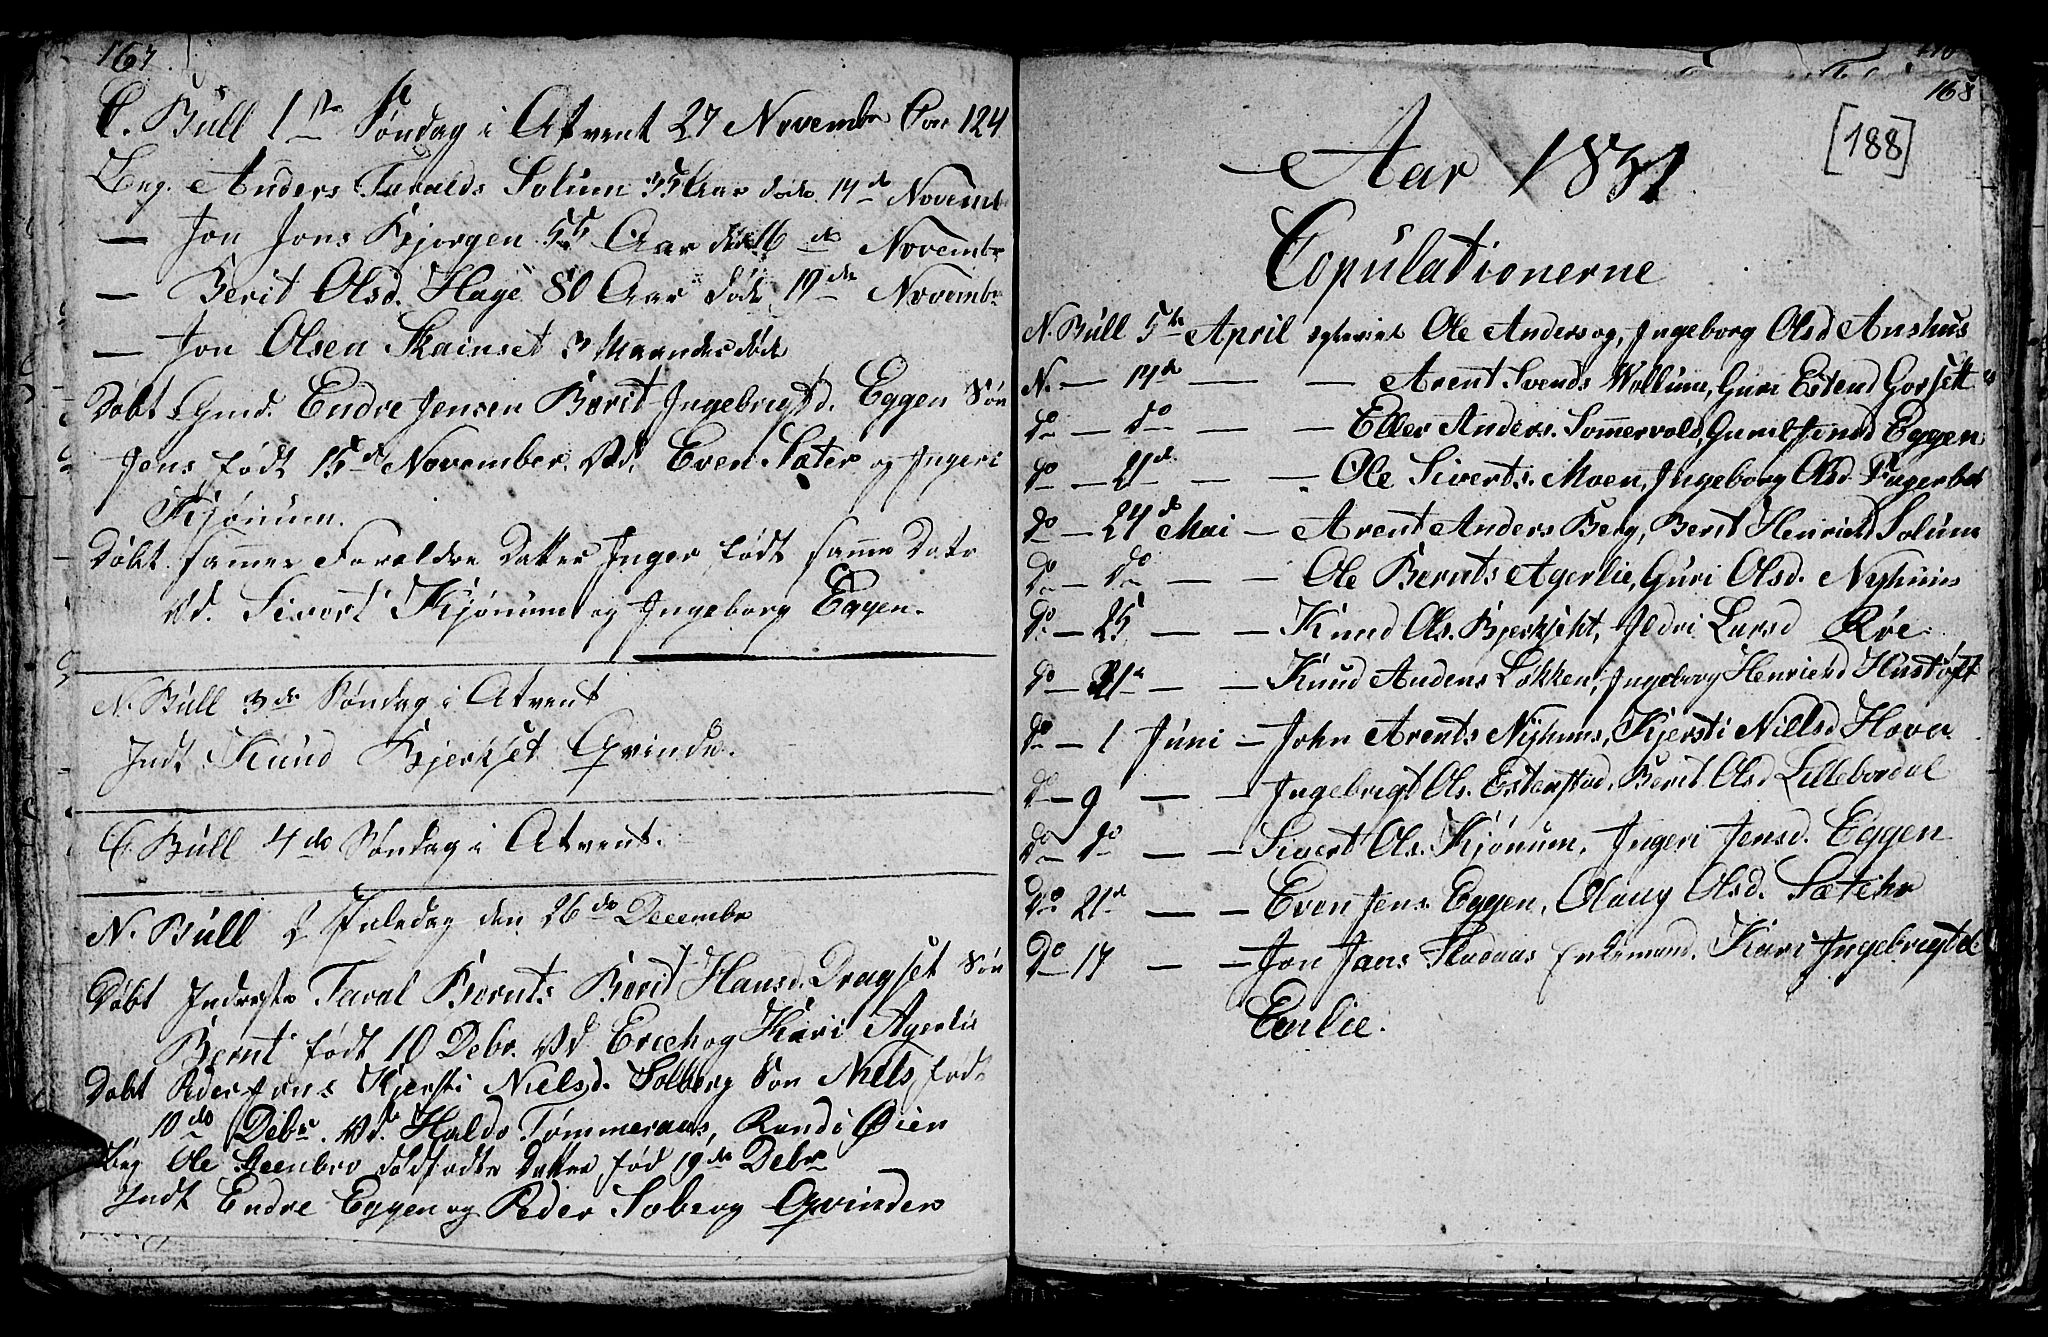 167
C. Bull 1ste Søndag i Atvent 27 November Com 124
Beg. Anders Taralds Solum 35 Aar døde 14de Novemb
— Jon Jons Bjorgen 55 Aar døde 16 de Novembr
— Berit Olsd. Hage 80 Aar døde 19de Novembr
— Jon Olsen Skainset 3 Maander døde
Døbt Gmd. Endre Jensen Berit Ingebrigtsd. Eggen Søn
Jens født 15de November. Vd. Even Sæter og Ingeri
Kjønum.
Døbt samme Forældre Datter Inger født samme Dato
Vd. Sivert Kjønum og Ingeborg Eggen.
N. Bull 3de Søndag i Atvent
Indt Knud Bjerkset Qvinde.
C. Bull 4de Søndag i Atvent.
N. Bull 2 Juledag den 26de Decembr
Døbt Inderste Taral Bernts Berit Hansd. Dragset Søn
Bernt født 10 Debr. Vd Erich og Kari Agerlie
Døbt Peder Jons Kjersti Nielsd. Solberg Søn Niels fød
10de Debr. Vd. Haldo Tømmeraas, Randi Øien
Beg Ole Steenbro dødfødte Datter fød 19de Debr
Indt Endre Eggen og Peder Soberg Qvinder
168
[188]
Aar 1831
Copulationerne
N. Bull 5te April copuleret Ole Anders og Ingeborg Olsd Aushus
N. — 14de — — Arent Svends Wollum, Guri Estend Gorset
do — do — — Eller Anders. Sommervold, Guril Jonsd Eggen
do — 21de — — Ole Siverts. Moen, Ingeborg Olsd Fugerbek
do — 24de Mai — Arent Anders Berg, Berit Henricksd Solum
do — do — — Ole Bernts Agerlie, Guri Olsd. Nyhuus
do — 25 — — Knud Ols. Bjerkset, Ildri Larsd Røe
do — 31te — — Knud Anders Løkken, Ingeborg Henricsd Hustøft
do — 1 Juni — John Arents Nyhuus, Kjersti Nielsd Hoven
do — 9 — — Ingebrigt Ols. Estenstad, Berit Olsd Lillebordal
do — do — — Sivert Ols. Kjønum, Ingeri Jensd. Eggen
do 21de — — Even Jens Eggen, Olaug Olsd. Sætehr
Do 17 — — Jon Jans Stadaas Enkemand, Kari Ingebrigtsd
Enlie.